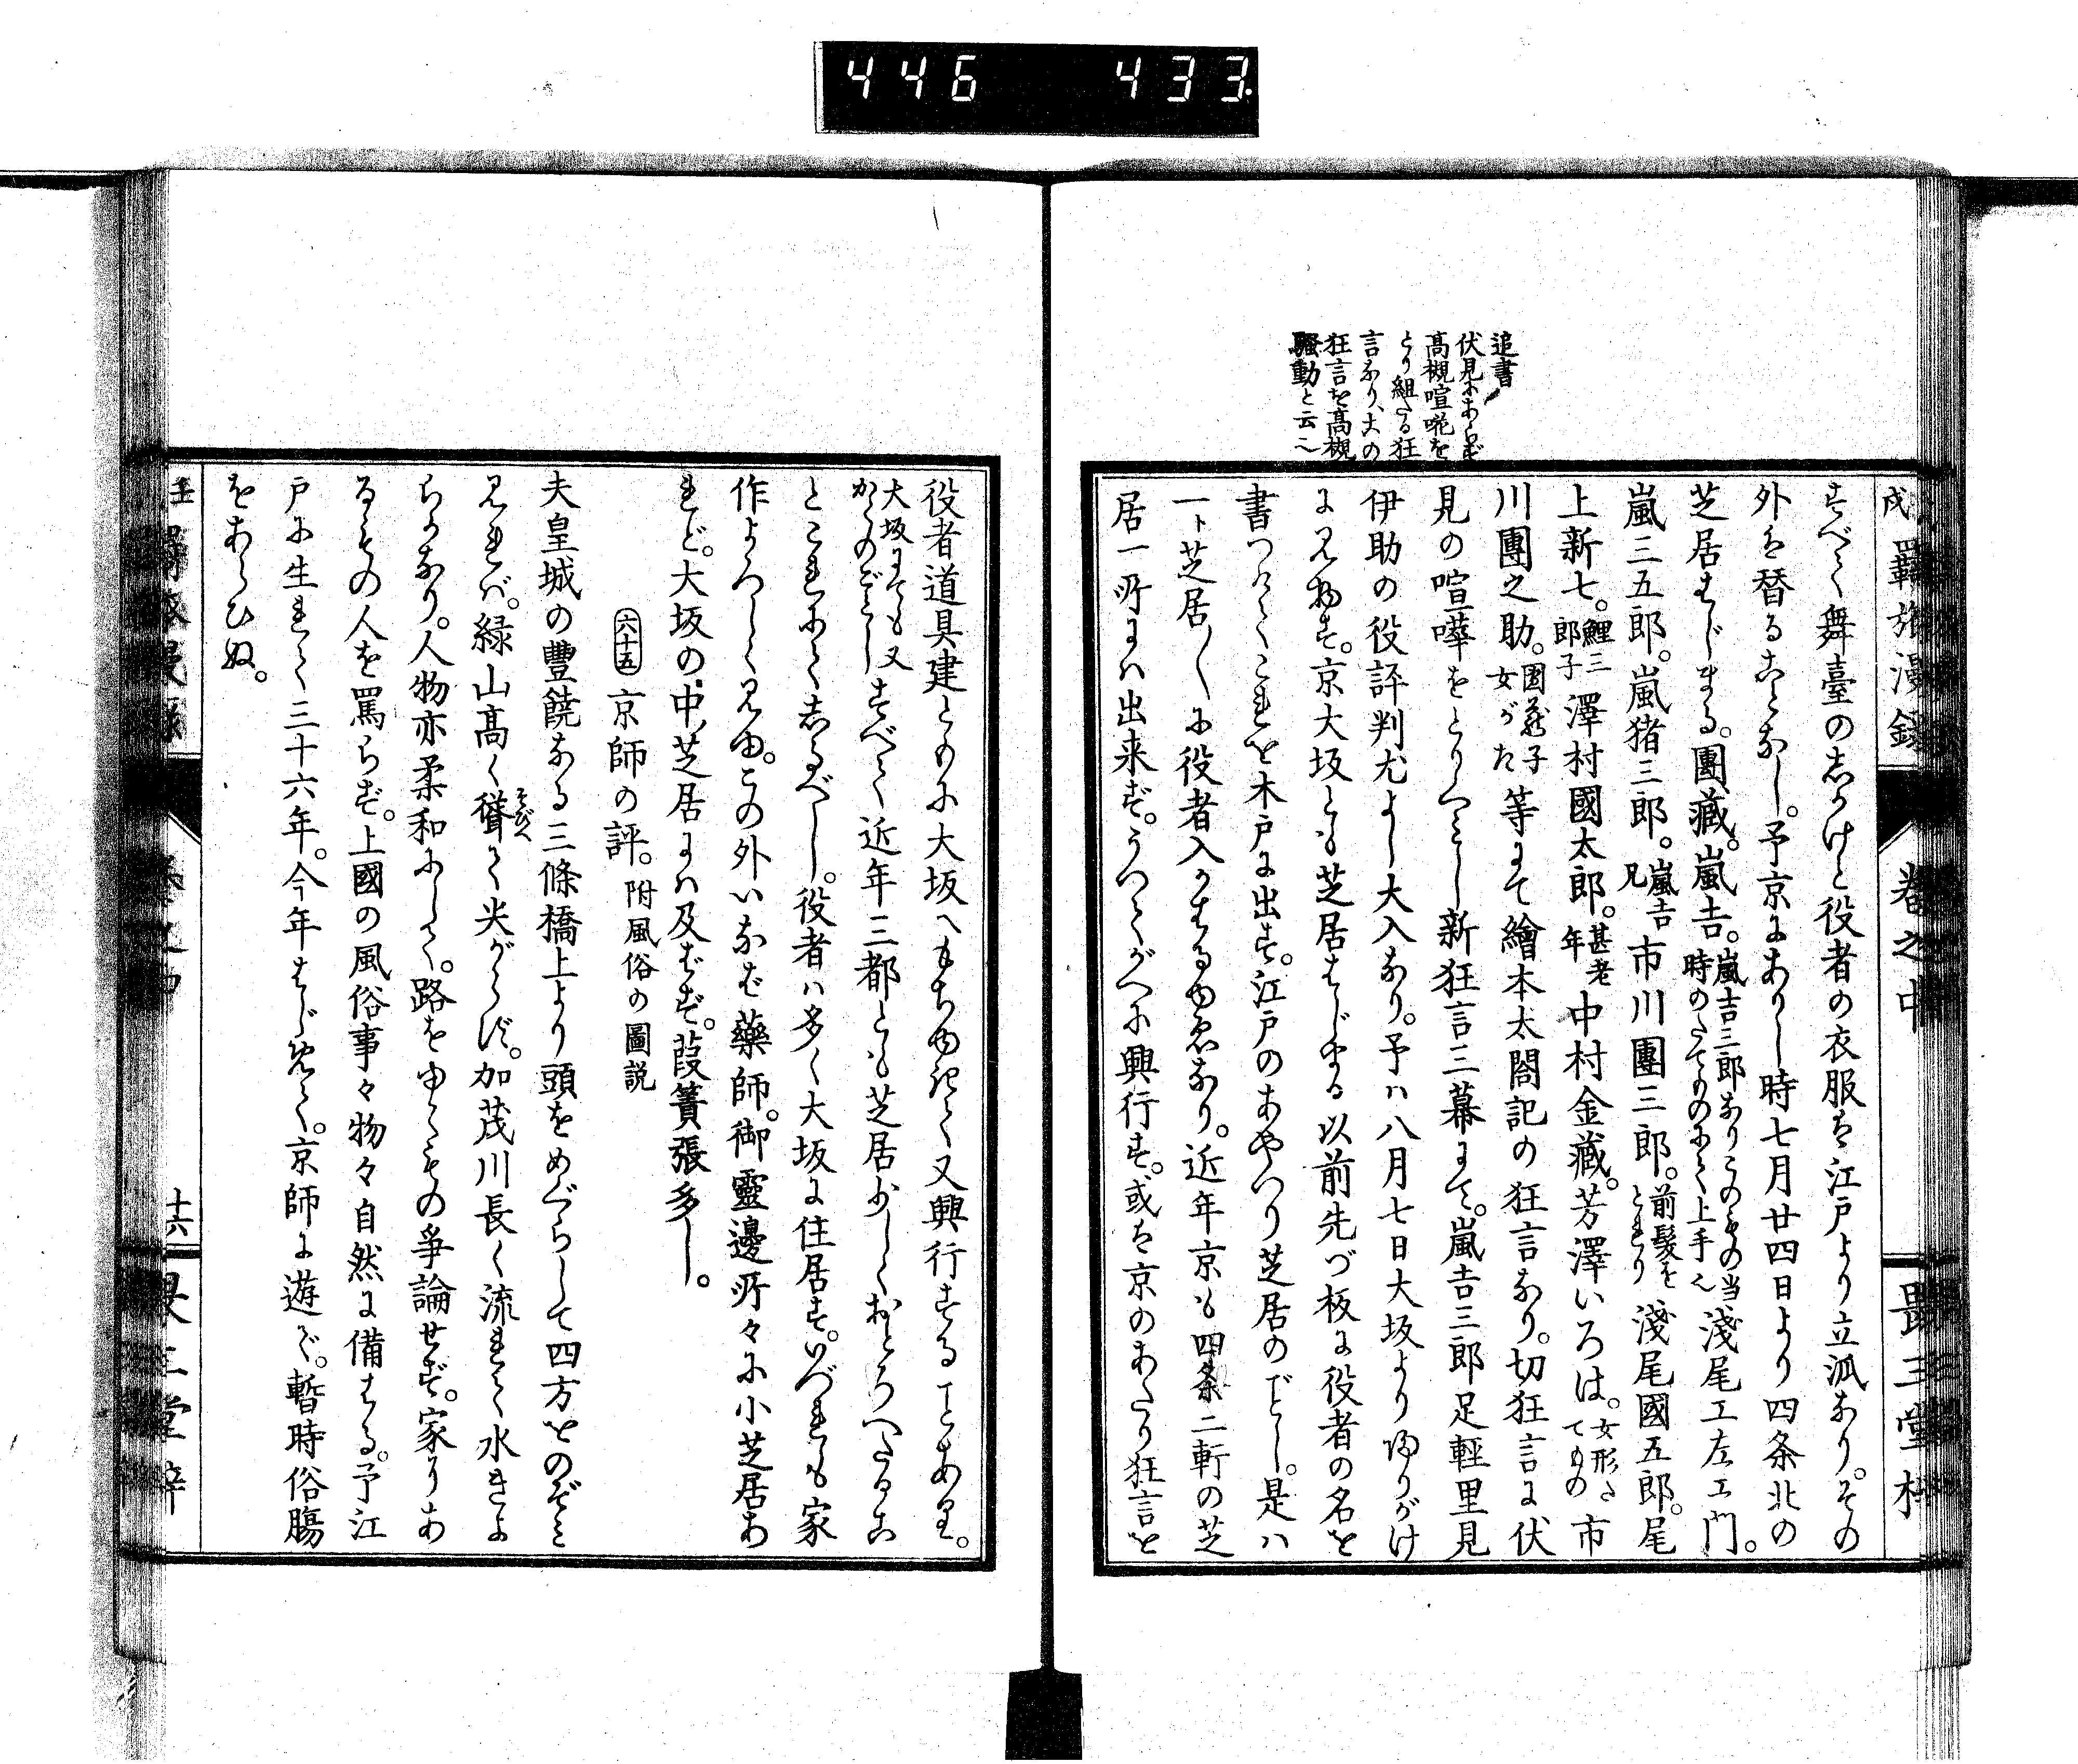 446 433
追書
伏見にあらず
高槻喧嘩を
とり組たる狂
言なり、大の
狂言を高槻
騒動と云〻
戌 羇旅漫録 巻之中
すべて舞臺のしかけと役者の衣服は江戸より立派なり。その
外は替ることなし。予京にありし時七月廿四日より四条北の
芝居はじまる。團藏。嵐吉。嵐吉三郎なりこのものの当時のたてものにて上手也 淺尾工左エ門。
嵐三五郎。嵐猪三郎。嵐吉兄 市川團三郎。前髪をとれり 淺尾國五郎。尾
上新七。鯉三郎子 澤村國太郎。甚老年 中村金藏。芳澤いろは。女形たてもの 市
川團之助。團藏子女がた 等にて繪本太閤記の狂言なり。切狂言に伏
見の喧嘩をとりくみし新狂言三幕にて。嵐吉三郎足輕里見
伊助の役評判尤よし大入なり。予ハ八月七日大坂より帰りがけ
に見物す。京大坂とも芝居はじまる以前先づ板に役者の名を
書つけてこれを木戸に出す。江戸のあやつり芝居のごとし。是ハ
一ト芝居〱に役者入かはるゆゑなり。近年京も四条二軒の芝
居一所にハ出来ず。うつてがへに興行す。或は京のあたり狂言を
役者道具建ともに大坂へもちゆきて又興行することあり。
大坂にても又かくのごとし すべて近年三都とも芝居少しくおとろへたるこ
とこれにてしるべし。役者ハ多く大坂に住居す。いづれも家
作よろしく見ゆ。この外いなば藥師。御靈邊所々に小芝居あ
れど。大坂の中芝居にハ及ばず。葭簀張多し。
六十五 京師の評。附風俗の圖説
夫皇城の豐饒なる三條橋上より頭をめぐらして四方をのぞみ
見れバ。緑山高く聳そびへて尖がらず。加茂川長く流れて水きよ
らかなり。人物亦柔和にして。路をゆくもの爭論せず。家にあ
るもの人を罵らず。上國の風俗事々物々自然に備はる。予江
戸に生れて三十六年。今年はじめて。京師に遊ぐ。暫時俗腸
をあらひぬ。
十六